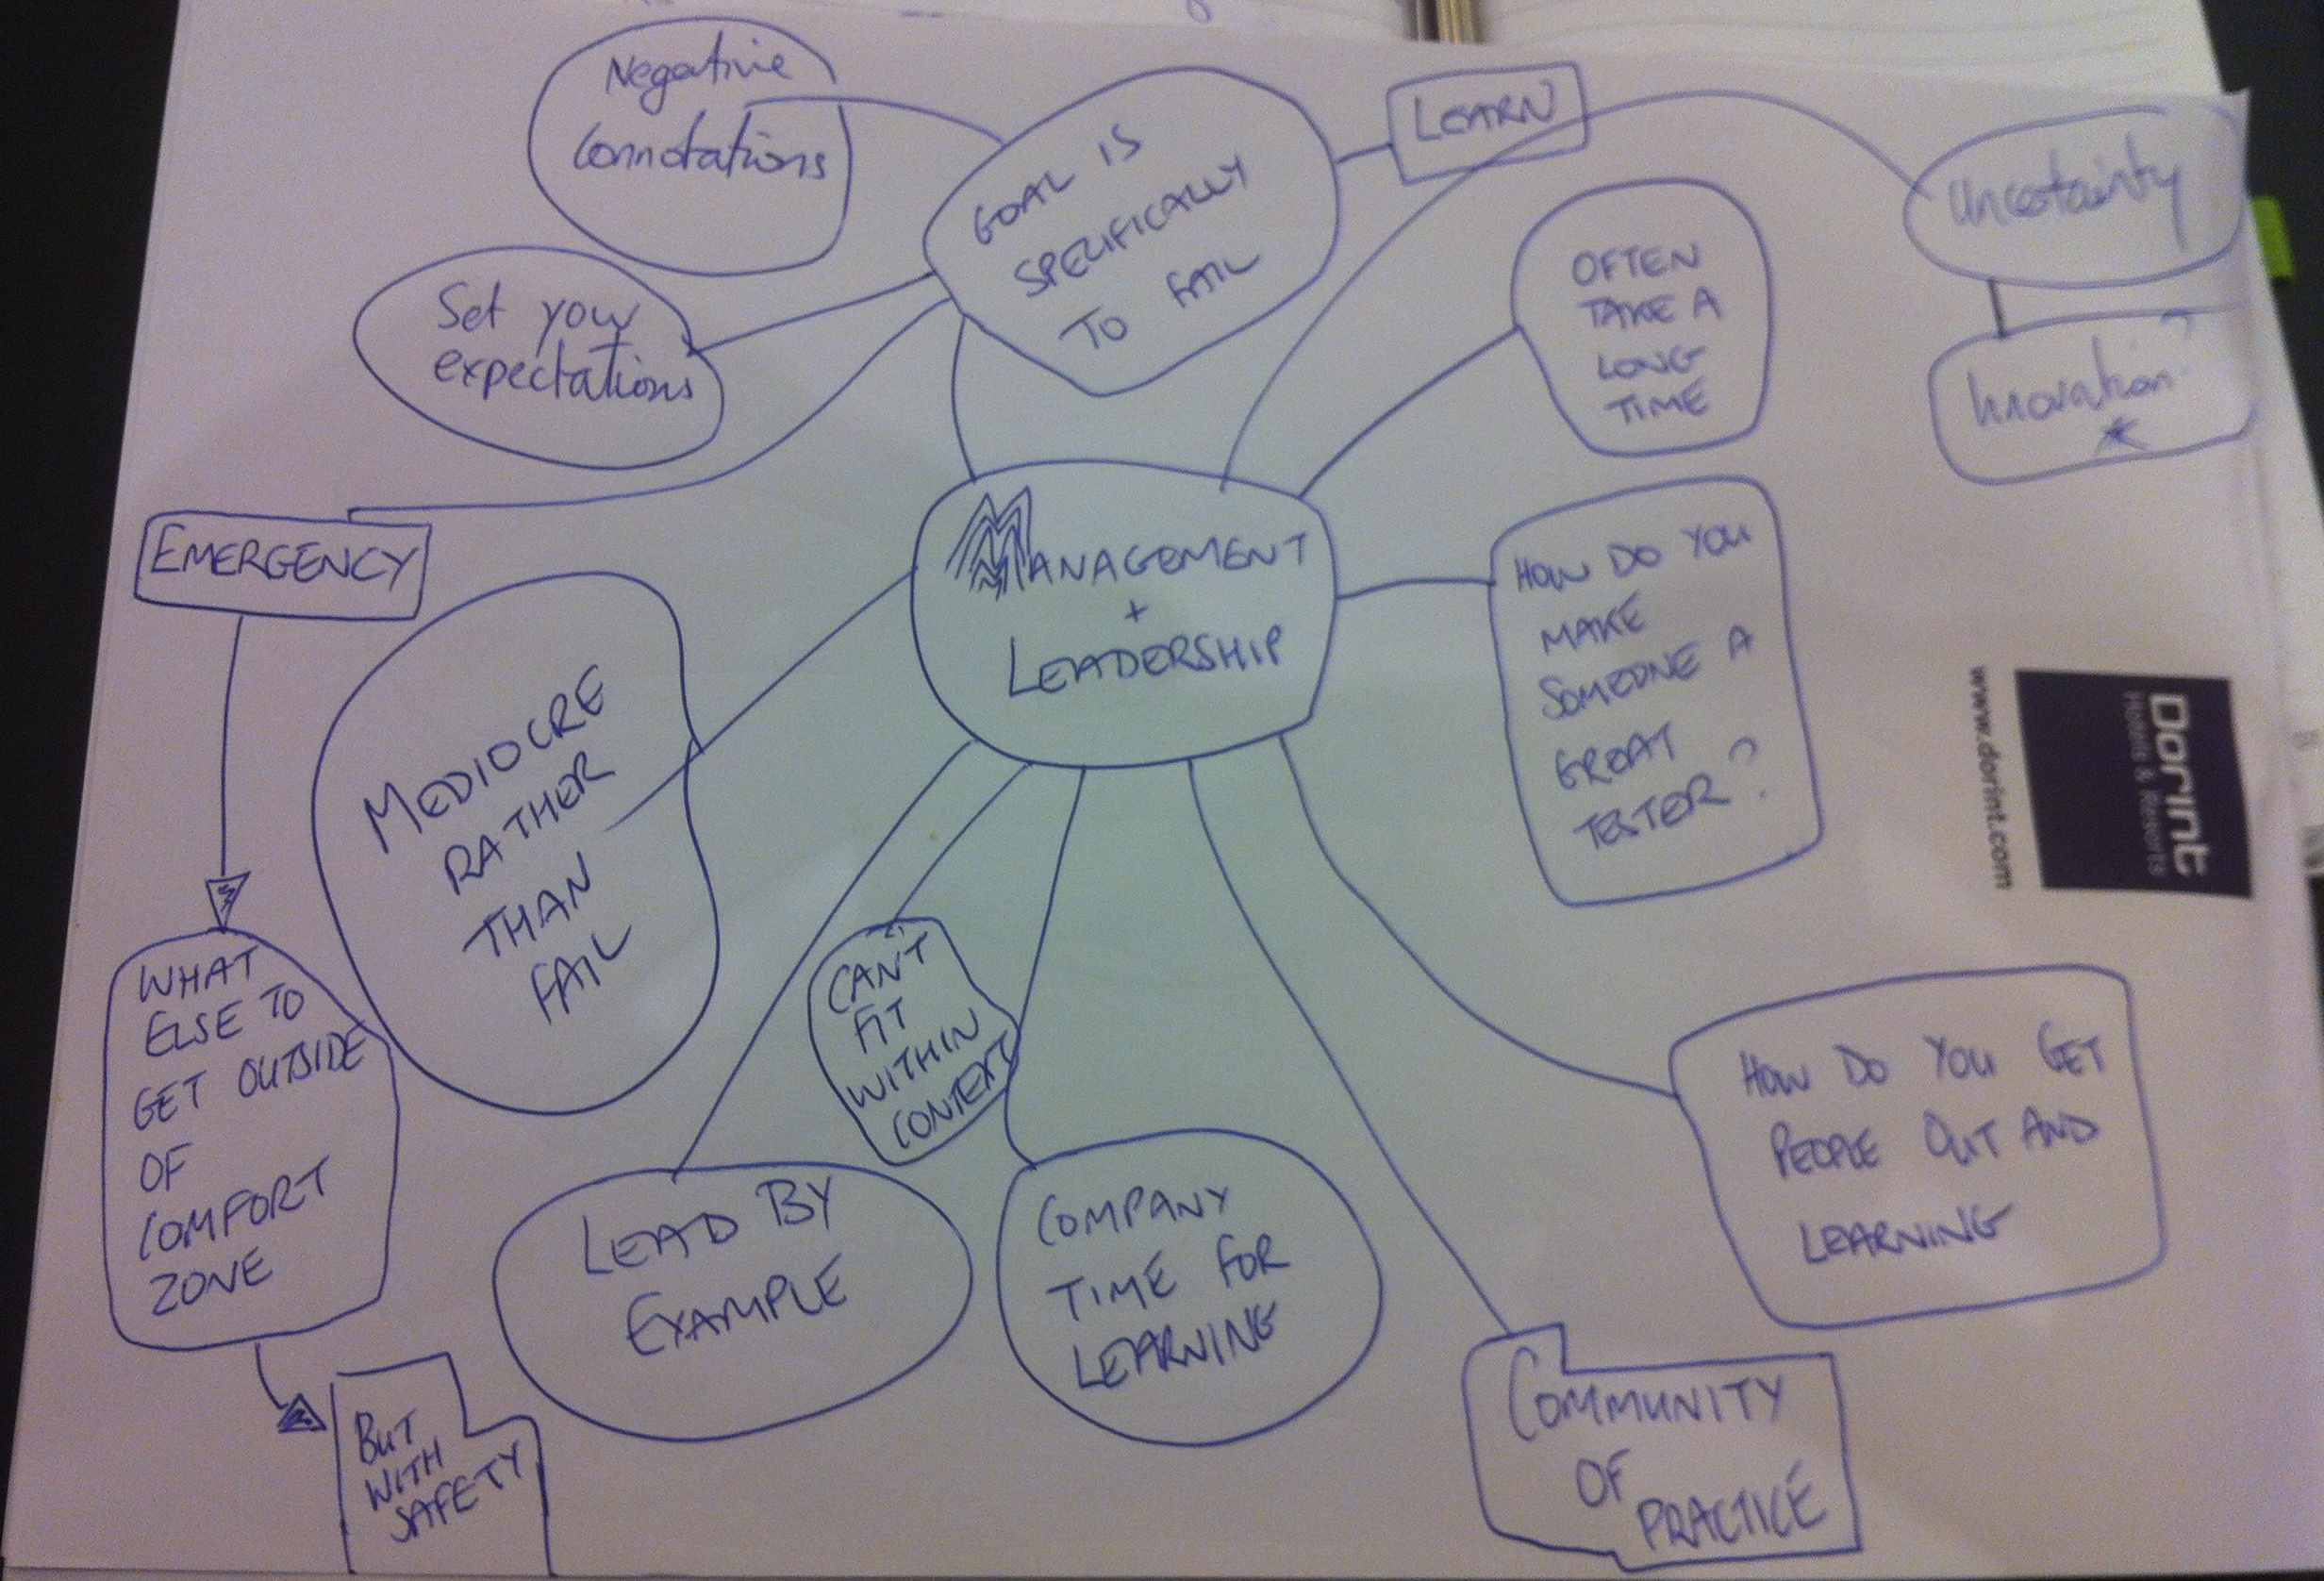 Negative
Connotations
GOAL IS
SPECIFICALLY
TO FAIL
LEARN
Uncertainty
Innovation?
Set your
expectations
OFTEN
TAKE A
LONG
TIME
EMERGENCY
MANAGEMENT
+
LEADERSHIP
HOW DO YOU
MAKE
SOMEONE A
GREAT
TESTER?
MEDIOCRE
RATHER
THAN
FAIL
Dorint
Hotels & Resorts
www.dorint.com
WHAT
ELSE TO
GET OUTSIDE
OF
COMFORT
ZONE
CAN'T
FIT
WITHIN
CONTEXT
HOW DO YOU GET
PEOPLE OUT AND
LEARNING
LEAD BY
EXAMPLE
COMPANY
TIME FOR
LEARNING
COMMUNITY
OF
PRACTICE
BUT
WITH
SAFETY